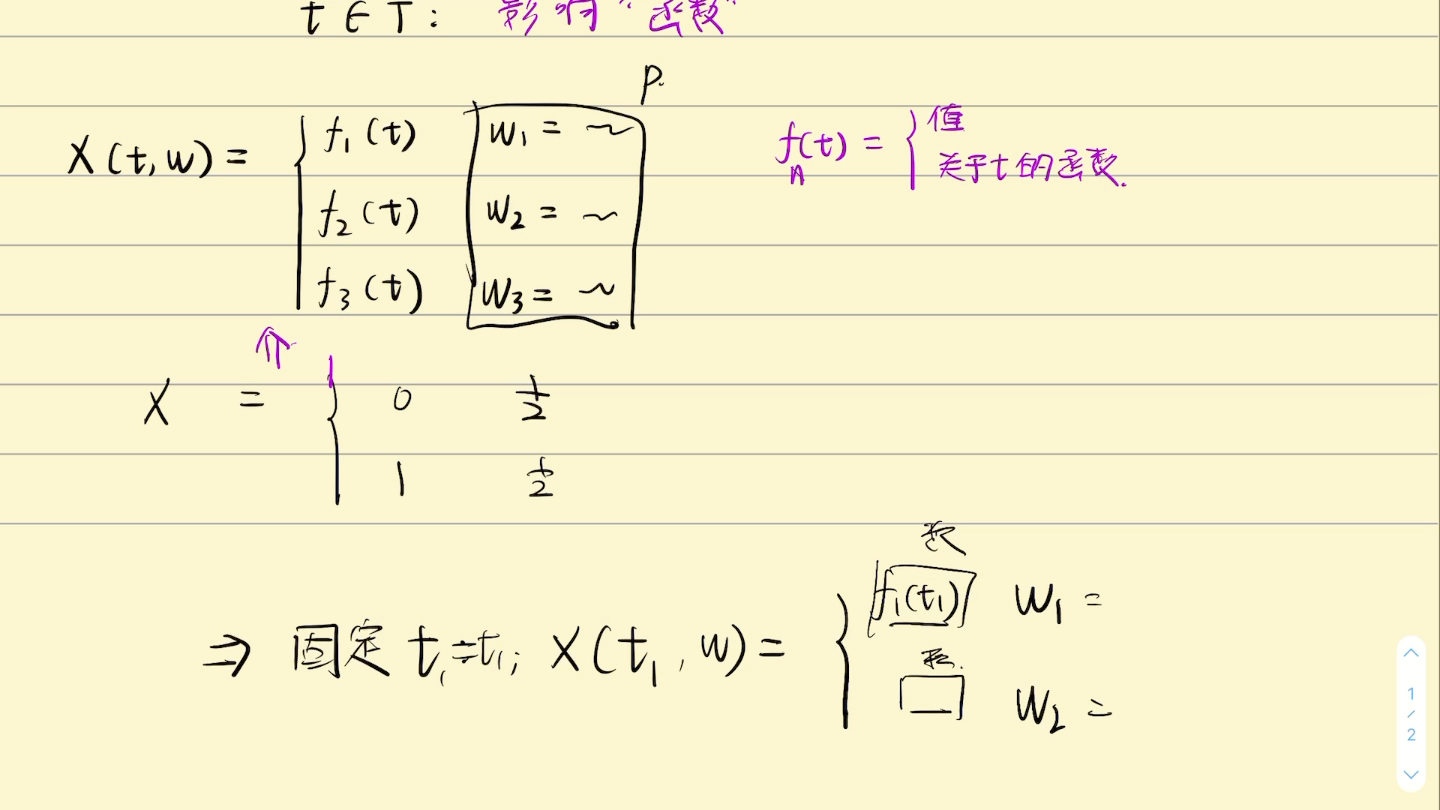 t ∈ T: 影响“函数”
P.
X(t,w) = { f₁(t) w₁ = ~
f₂(t) w₂ = ~
f₃(t) w₃ = ~
f(t) = { 值
关于t的函数.
⇑
X = { 0 1/2
1 1/2
数
⇒ 固定 t₁=t₁; X(t₁,w) = { f₁(t₁) w₁ =
w₂ =
1
/
2